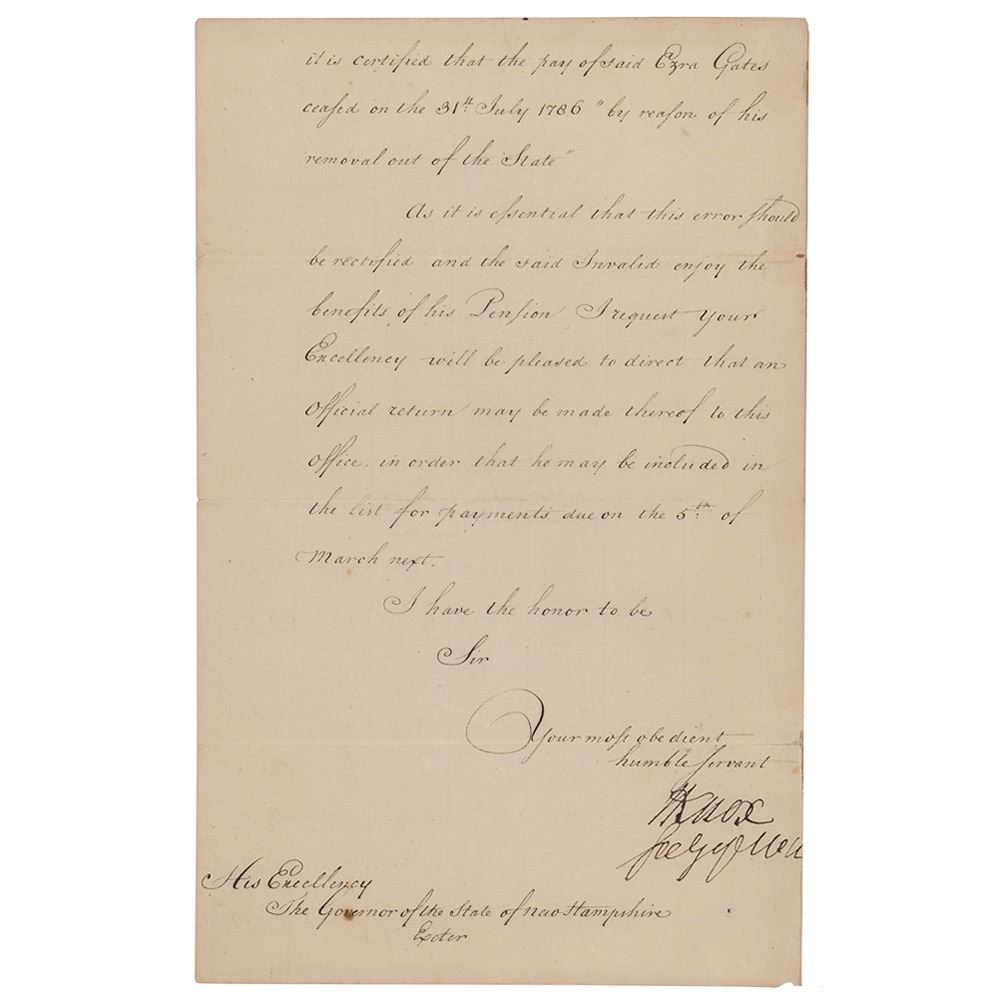 it is certified that the pay of said Ezra Gates
ceaſed on the 31st July 1786 "by reaſon of his
removal out of the State"
As it is eſsential that this error ſhould
be rectified and the said Invalid enjoy the
benefits of his Penſion I request Your
Excellency will be pleased to direct that an
Official return may be made thereof to this
Office. in order that he may be included in
the list for payments due on the 5th of
March next.
I have the honor to be
Sir
Your moſt obedient
humble ſervant
HKnox
Secy of War
His Excellency
The Governor of the State of New Hampshire
Exeter